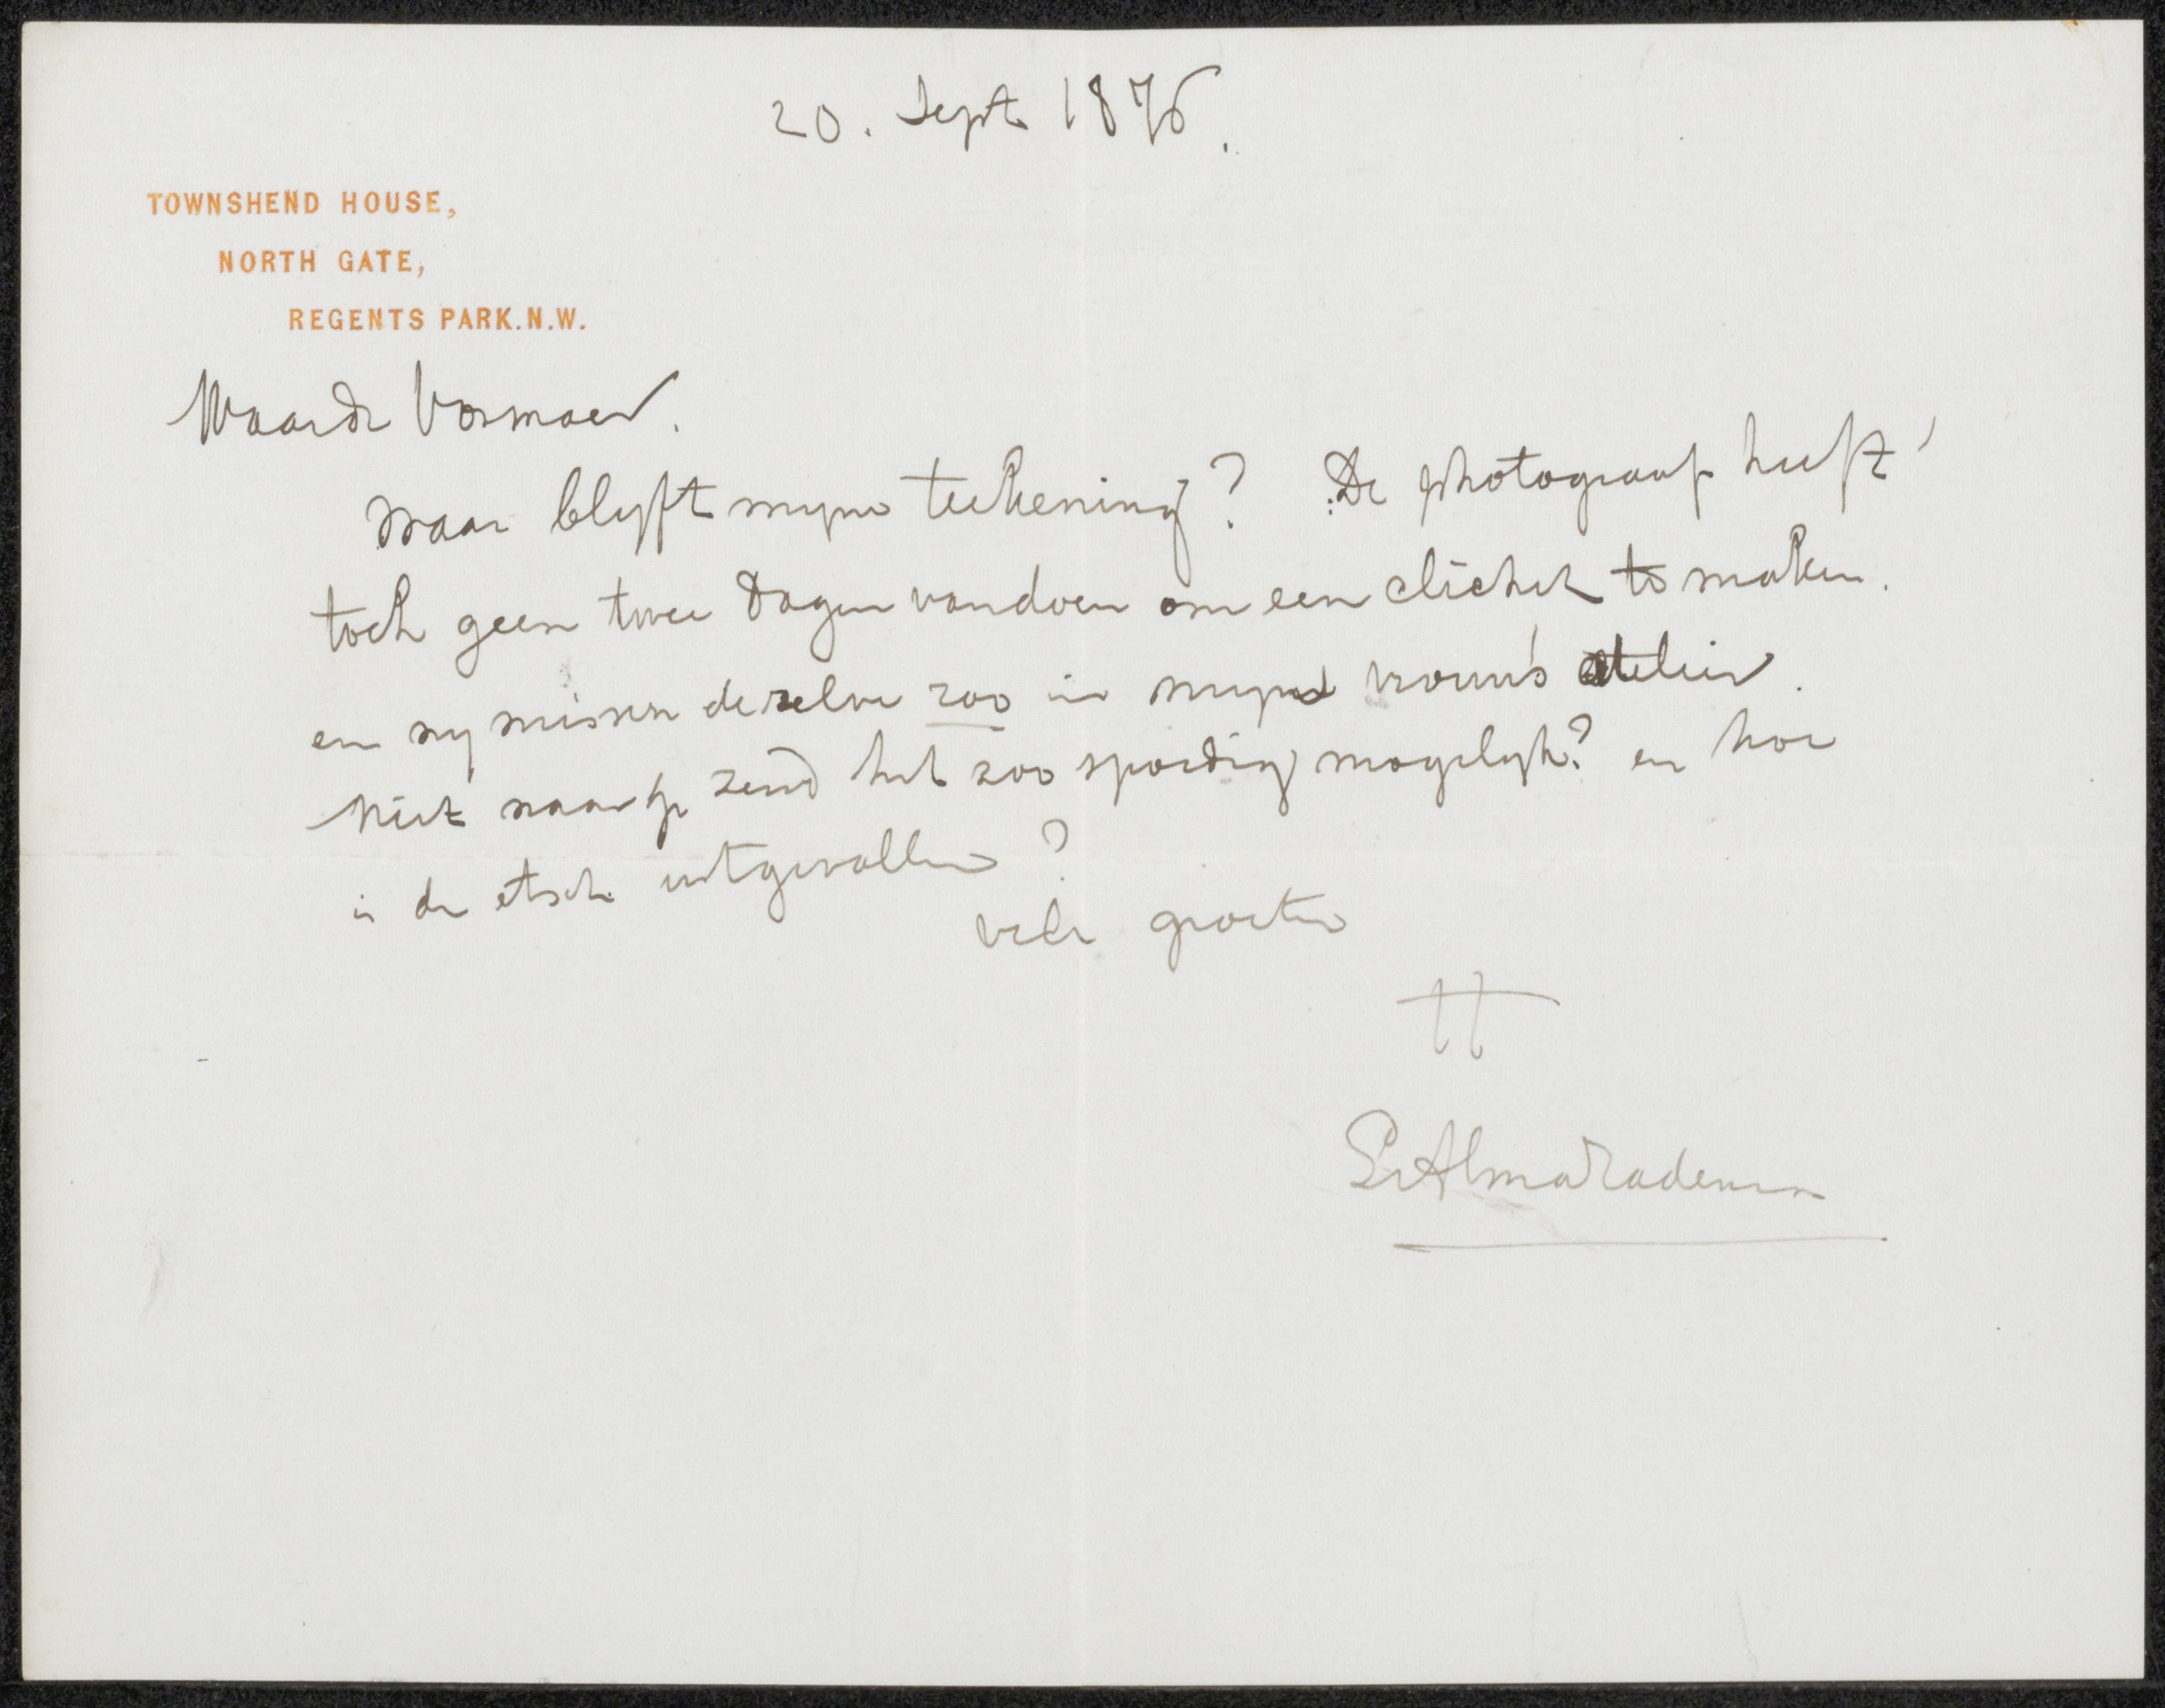 20. Sept 1876.
TOWNSHEND HOUSE,
NORTH GATE,
REGENTS PARK.N.W.
Waarde Vosmaer.
Waar blyft myne teekening? De photograaf heeft
toch geen twee Dagen vandoen om een cliché te maken.
en wy missen dezelve zoo in myne vrouw's atelier.
Niet waar gy zend het zoo spoedig mogelyk? en hoe
is de etsch uitgevallen?
vele groeten
TT
L Alma Tadema